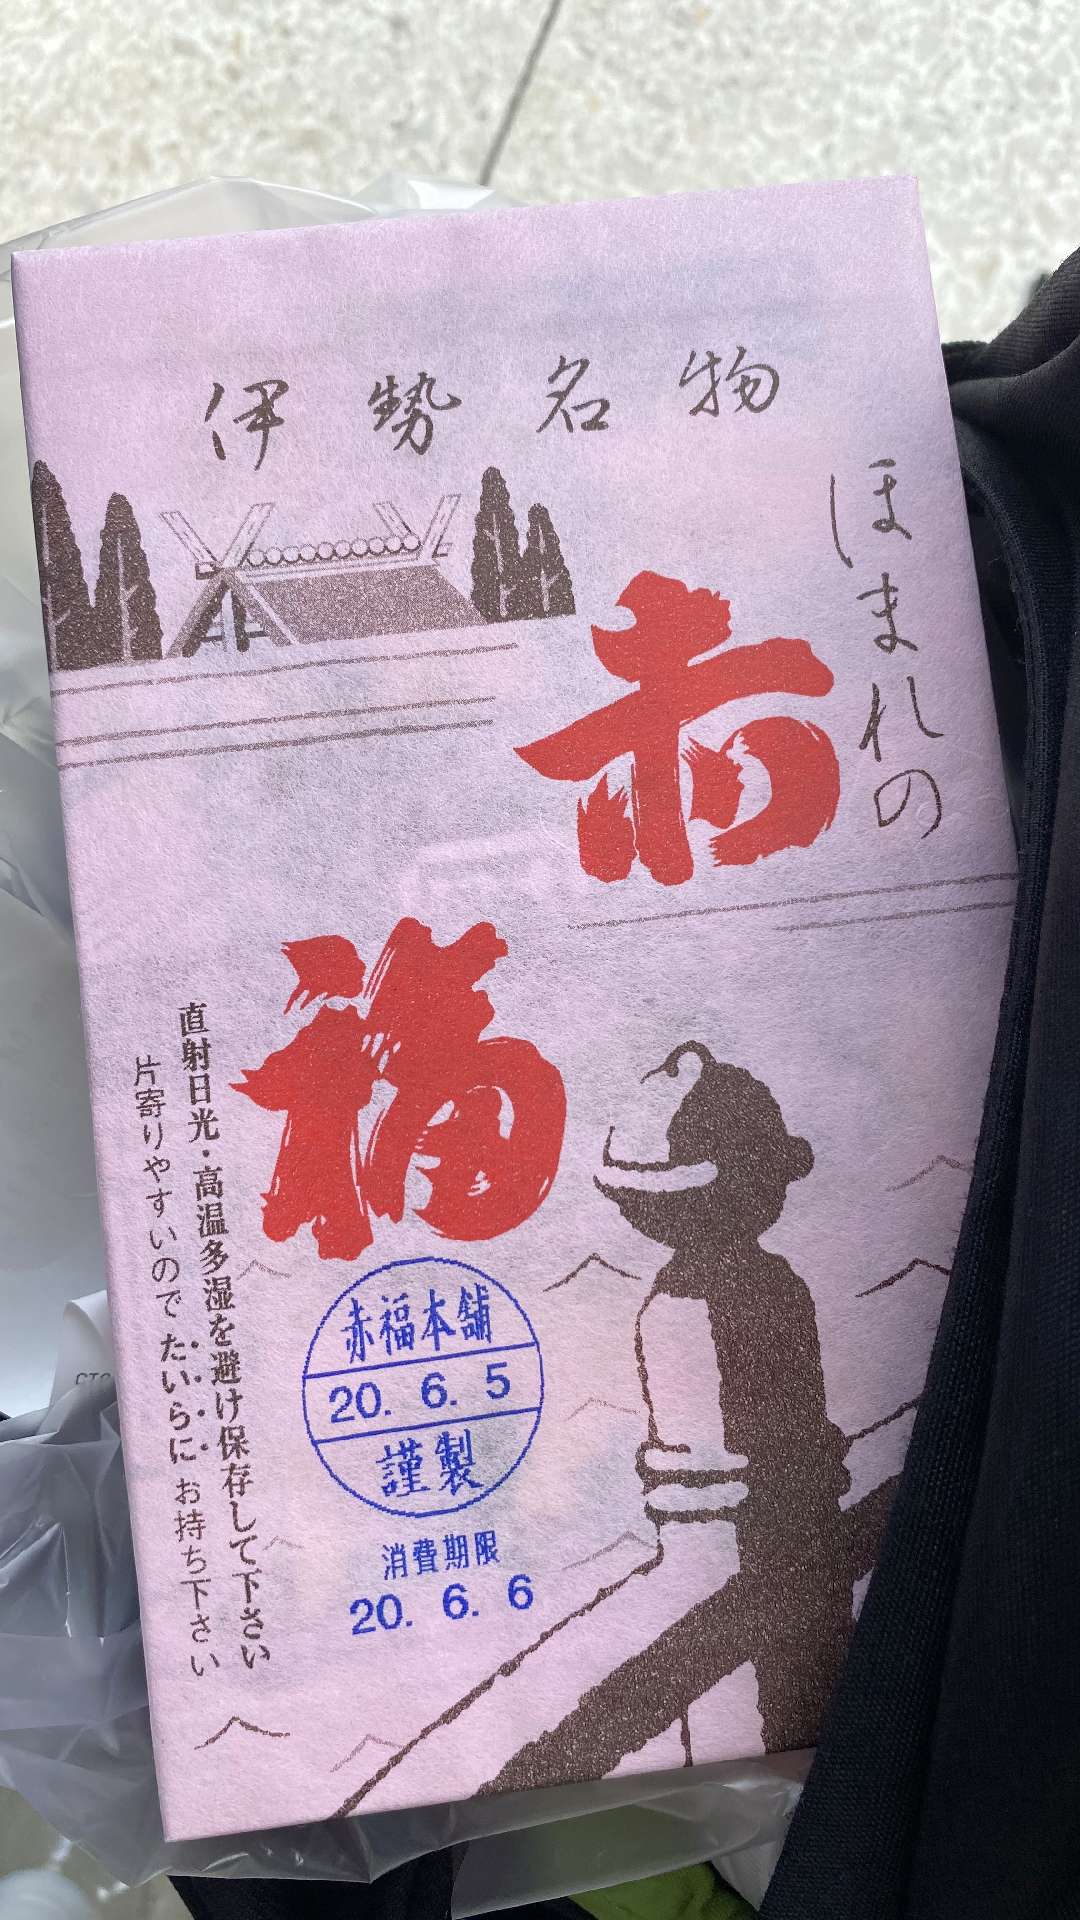 伊勢名物
ほまれの
赤福
直射日光・高温多湿を避け保存して下さい
片寄りやすいのでたいらにお持ち下さい
赤福本舗
20. 6. 5
謹製
消費期限
20. 6. 6